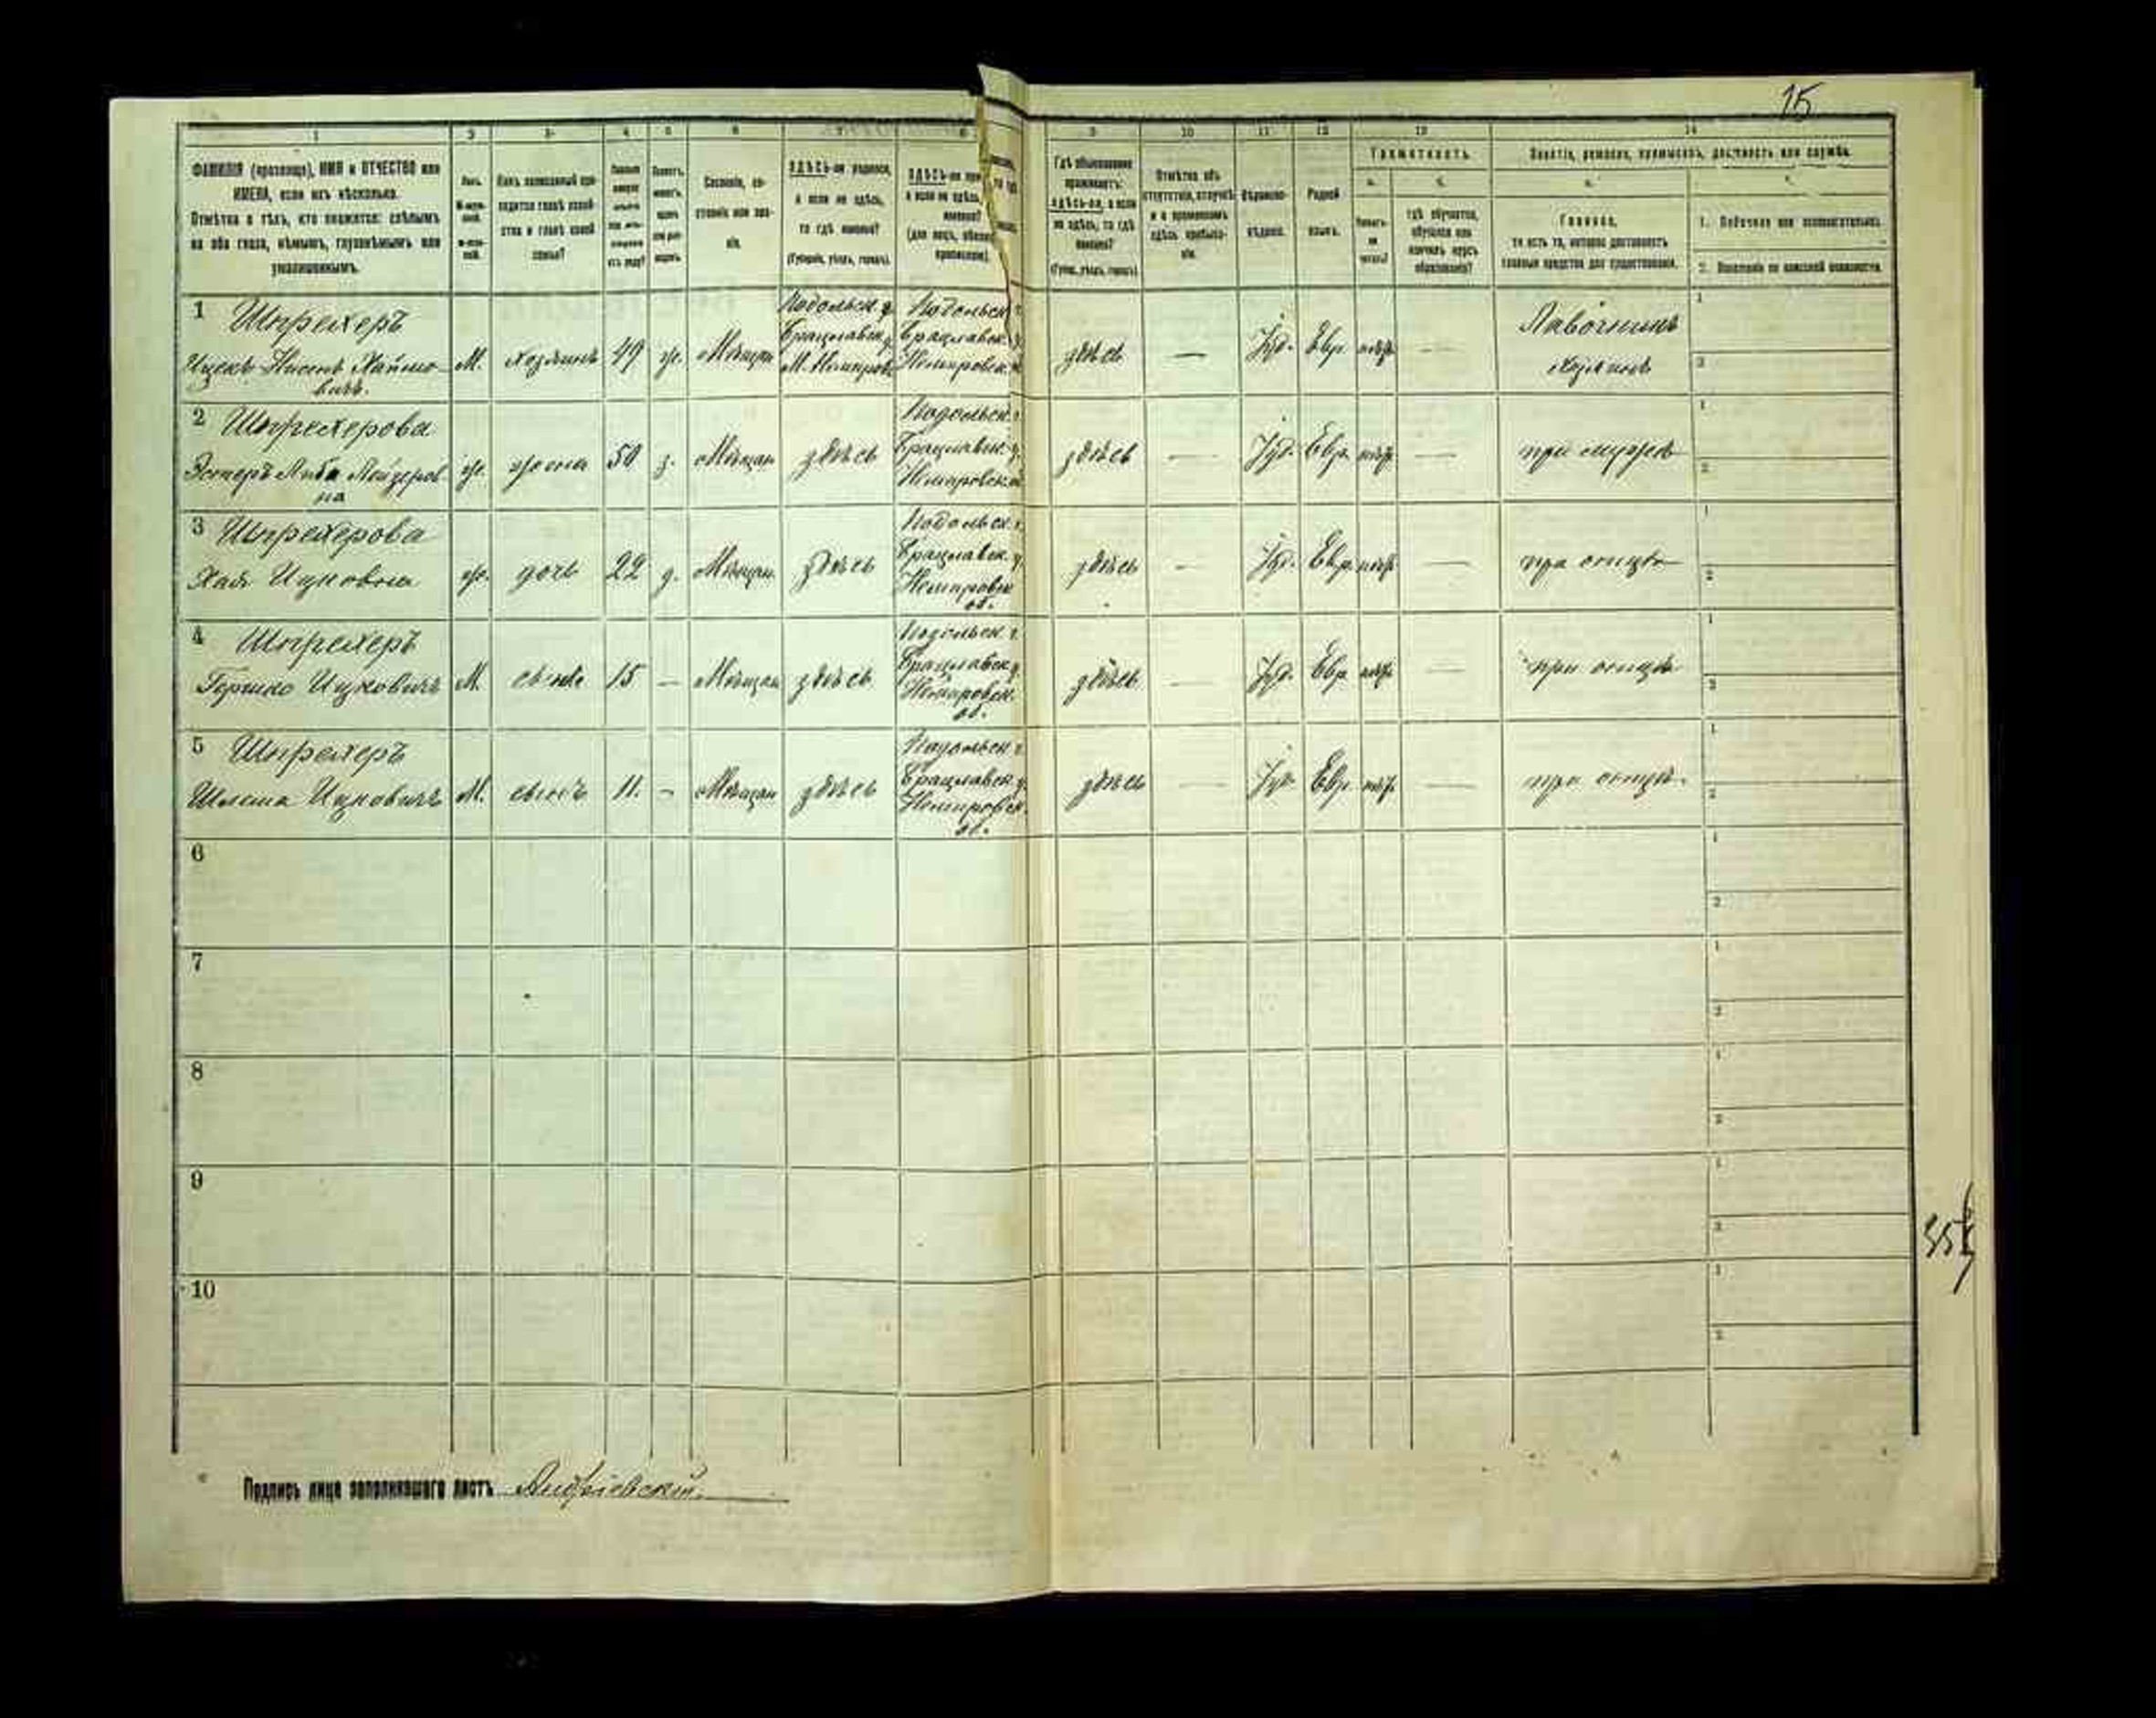 15
1 2 3 4 5 6 7 8 9 10 11 12 13 14
ФАМИЛІЯ (прозвище), ИМЯ и ОТЧЕСТВО или
ИМЕНА, если ихъ нѣсколько.
Отмѣтка о тѣхъ, кто окажется: слѣпымъ
на оба глаза, нѣмымъ, глухонѣмымъ или
умалишеннымъ.
Какъ записанный при-
ходится главѣ хозяй-
ства и главѣ своей
семьи?
Сословіе, со-
стояніе или зва-
ніе.
ЗДѢСЬ-ли родился,
а если не здѣсь,
то гдѣ именно?
(Губернія, уѣздъ, городъ).
Гдѣ обыкновенно
проживаетъ:
здѣсь-ли, а если
не здѣсь, то гдѣ
именно?
(Губер., уѣздъ, городъ).
Отмѣтка объ
отсутствіи, отлучкѣ
и о временномъ
здѣсь пребыва-
ніи.
Вѣроиспо-
вѣданіе.
Родной
языкъ.
Грамотность.
а. б.
Умѣетъ-
ли
читать?
гдѣ обучается,
обучался или
кончилъ курсъ
образованія?
Занятіе, ремесло, промыселъ, должность или служба.
Главное,
то есть то, которое доставляетъ
главныя средства для существованія.
1. Побочное или вспомогательное.
2. Положеніе по воинской повинности.
1 Шпрехеръ
Ицекъ-Нисенъ Хаимо-
вичъ.
М. хозяинъ 49 ж. Мѣщан
Подольск. г.
Брацлавск. у.
М. Немиров
Подольск. г.
Брацлавск. у.
Немировск.
здѣсь — Іуд. Евр. нѣтъ —
Лавочникъ
хозяинъ
2 Шпрехерова
Эстеръ Лейзеров
на
ж. жена 50 з. Мѣщан здѣсь
Подольск. г.
Брацлавск. у.
Немировск.
здѣсь — Іуд. Евр. нѣтъ — при мужѣ
3 Шпрехерова
Хая Ицковна
ж. дочь 22 д. Мѣщан. здѣсь
Подольск. г.
Брацлавск. у.
Немировск
об.
здѣсь — Іуд. Евр. нѣтъ — при отцѣ
4 Шпрехеръ
Гершко Ицковичъ
М. сынъ 15 — Мѣщан здѣсь
Подольск. г.
Брацлавск. у.
Немировск.
об.
здѣсь — Іуд. Евр. нѣтъ — при отцѣ
5 Шпрехеръ
Шлема Ицковичъ
М. сынъ 11. — Мѣщан здѣсь
Подольск. г.
Брацлавск. у.
Немировск.
об.
здѣсь — Іуд. Евр. нѣтъ — при отцѣ.
6
7
8
9
10
Подпись лица заполнявшаго листъ Андріевскій.